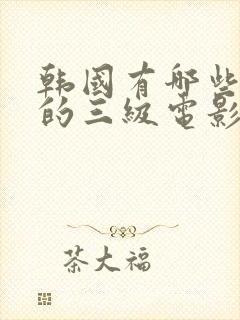 韩國有哪些
的三级电影
茶大福